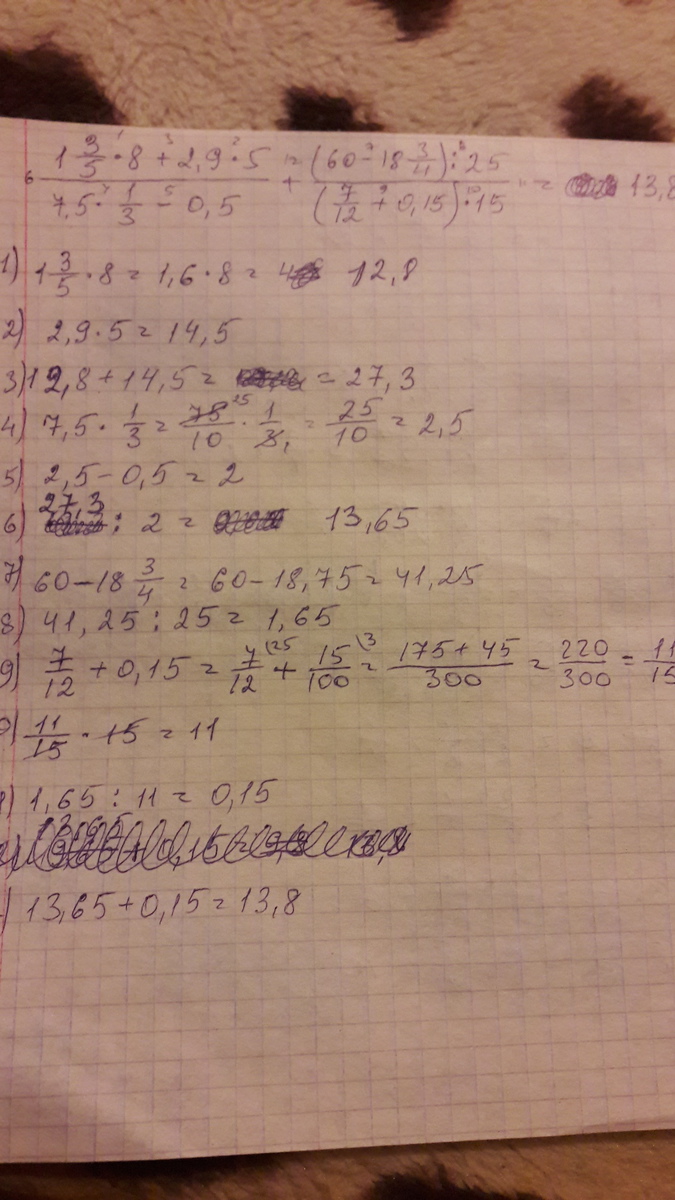 6 (1 3/5 · 8 + 2,9 · 5)/(7,5 · 1/3 - 0,5) + ((60 - 18 3/4) : 25)/((7/12 + 0,15) · 15) = 13,8
1) 1 3/5 · 8 = 1,6 · 8 = 12,8
2) 2,9 · 5 = 14,5
3) 12,8 + 14,5 = = 27,3
4) 7,5 · 1/3 = 75/10 · 1/3 = 25/10 = 2,5
5) 2,5 - 0,5 = 2
6) 27,3 : 2 = 13,65
7) 60 - 18 3/4 = 60 - 18,75 = 41,25
8) 41,25 : 25 = 1,65
9) 7/12 + 15/100 = (175 + 45)/300 = 220/300 = 11/15
) 11/15 · 15 = 11
) 1,65 : 11 = 0,15
) 13,65 + 0,15 = 13,8